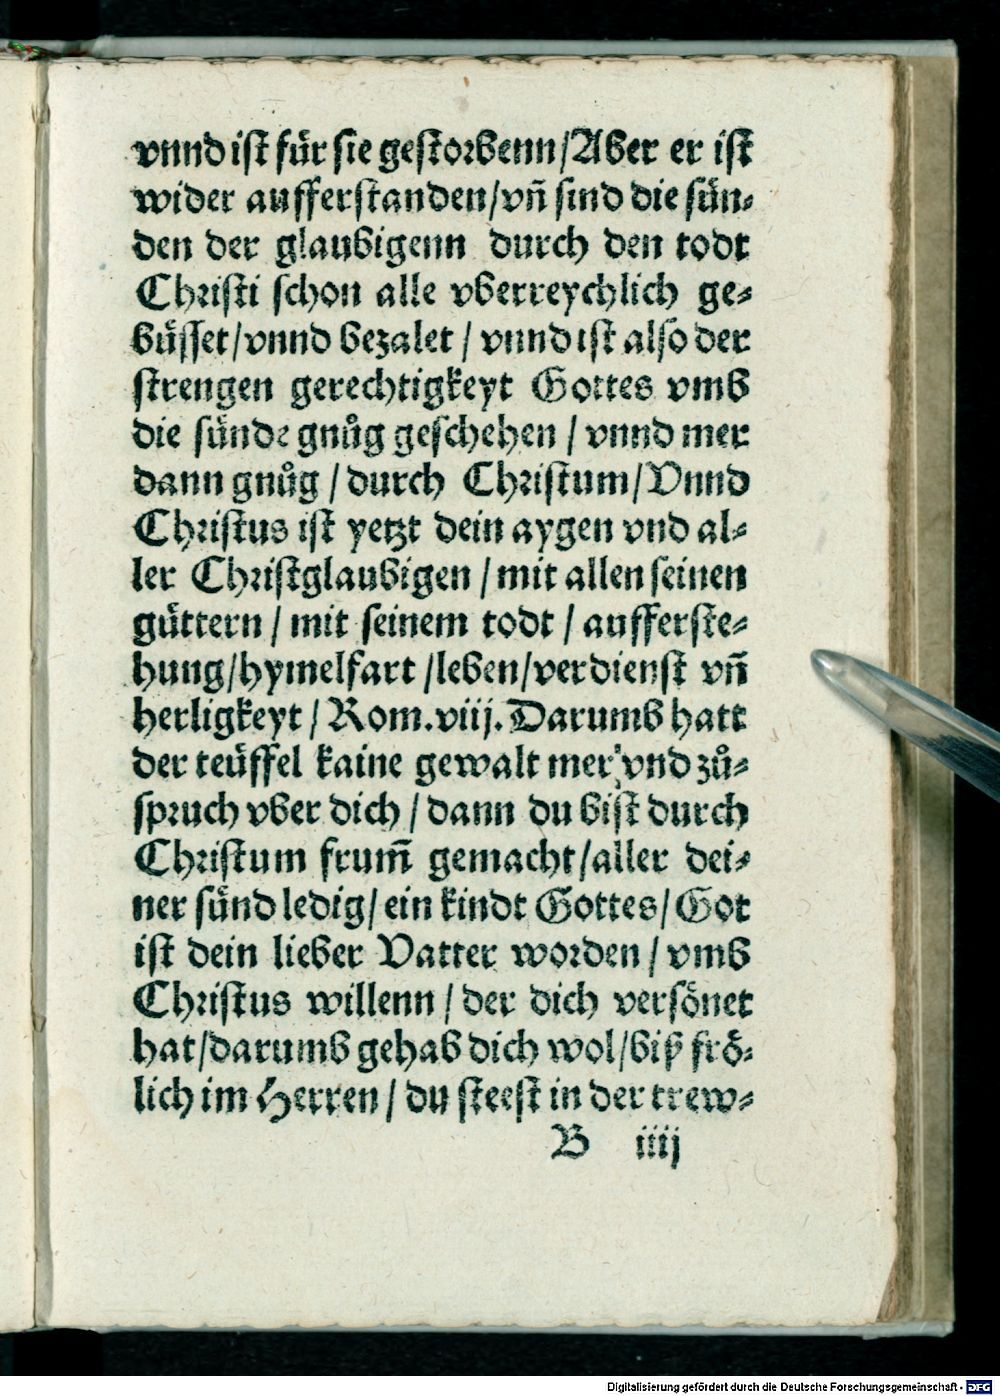 vnnd ist für sie gestorbenn/Aber er ist
wider aufferstanden/vñ sind die sün⸗
den der glaubigenn durch den todt
Christi schon alle vberreychlich ge⸗
büsset/vnnd bezalet / vnnd ist also der
strengen gerechtigkeyt Gottes vmb
die sünde gnůg geschehen / vnnd mer
dann gnůg / durch Christum/Vnnd
Christus ist yetzt dein aygen vnd al⸗
ler Christglaubigen / mit allen seinen
güttern / mit seinem todt / aufferste⸗
hung/hymelfart /leben/verdienst vñ
herligkeyt / Rom.viij. Darumb hatt
der teüffel kaine gewalt mer vnd zů⸗
spruch vber dich / dann du bist durch
Christum frum̃ gemacht/aller dei⸗
ner sünd ledig/ ein kindt Gottes/ Got
ist dein lieber Vatter worden / vmb
Christus willenn / der dich versönet
hat/darumb gehab dich wol/biß frö⸗
lich im Herren / du steest in der trew⸗
B iiij
Digitalisierung gefördert durch die Deutsche Forschungsgemeinschaft - DFG